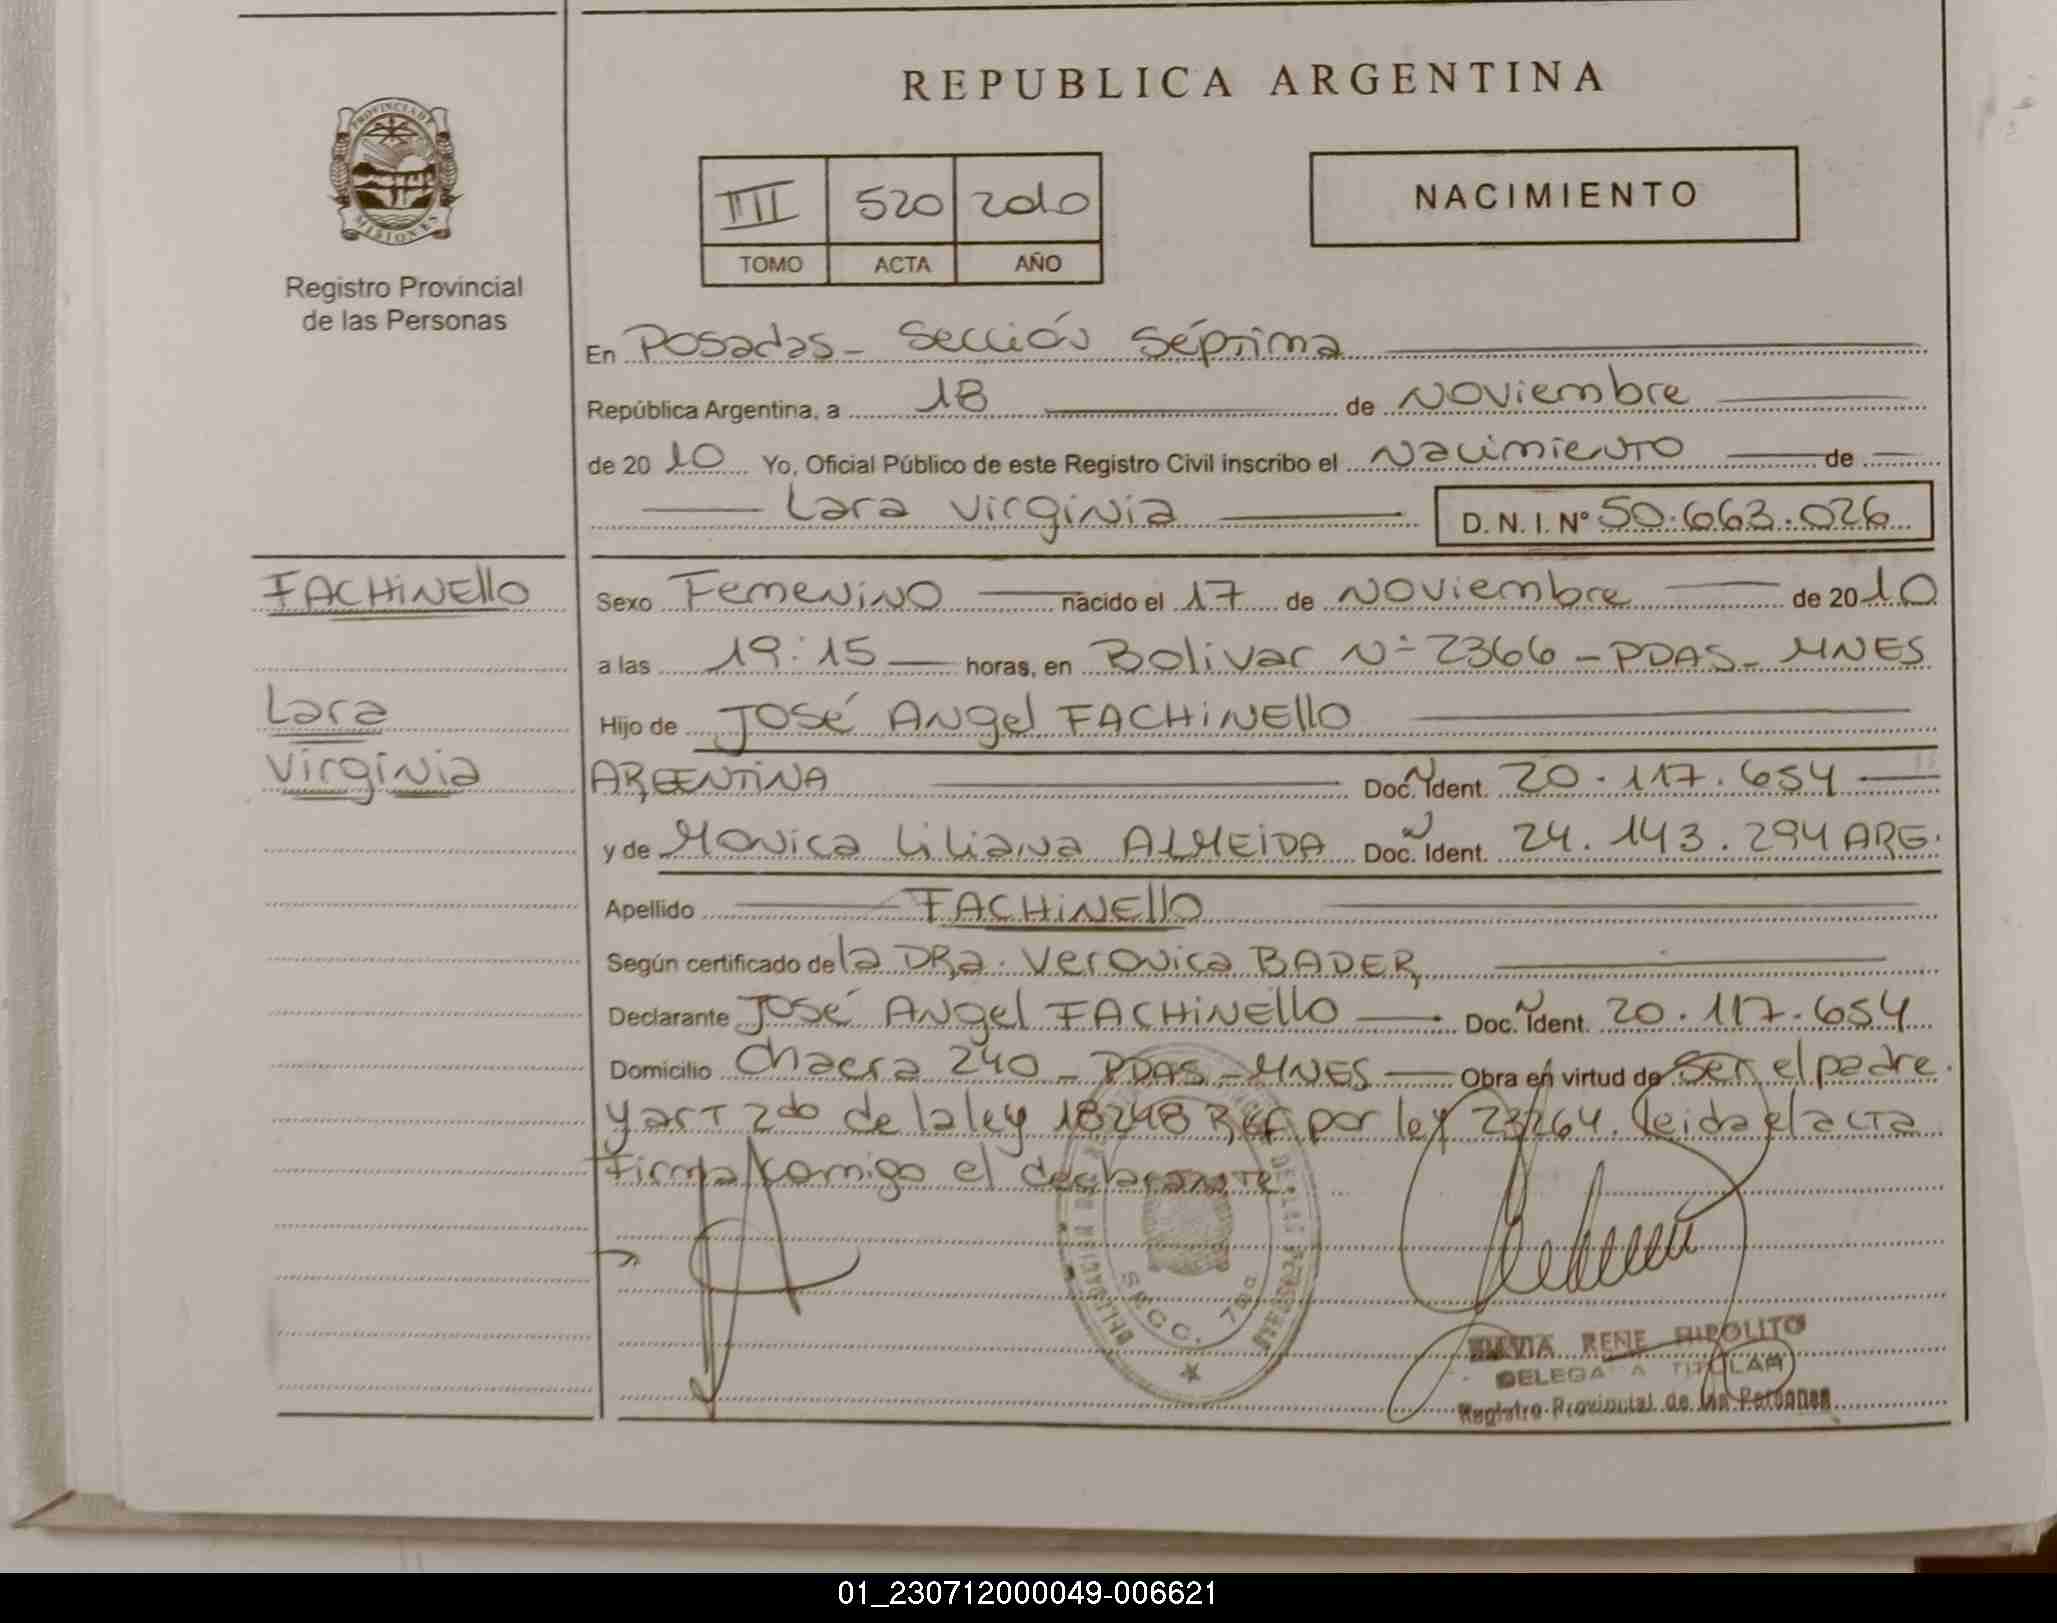 REPUBLICA ARGENTINA
PROVINCIA DE
MISIONES
Registro Provincial
de las Personas
III 520 2010
TOMO ACTA AÑO
NACIMIENTO
En Posadas - Sección Séptima
República Argentina, a 18 de Noviembre
de 20 10 Yo, Oficial Público de este Registro Civil inscribo el Nacimiento de
Lara Virginia D. N. I. Nº 50.663.026
FACHINEllO
Lara
Virginia
Sexo Femenino nacido el 17 de Noviembre de 20 10
a las 19:15 horas, en Bolivar Nº 2366 - PDAS - MNES
Hijo de José Angel FACHINEllO
ARGENTINA Doc. Ident. 20.117.654
y de Monica Liliana ALMEIDA Doc. Ident. 24.143.294 ARG.
Apellido FACHINEllO
Según certificado de la DRa. Veronica BADER
Declarante José Angel FACHINEllO Doc. Ident. 20.117.654
Domicilio Chacra 240 - PDAS - MNES Obra en virtud de ser el padre
y art 2do de la ley 18248 Ref por ley 23264. leida el acta
Firma comigo el declarante.
SECC. 7ma
RENE HIPOLITO
TITULAR
Registro Provincial de las Personas
01_230712000049-006621